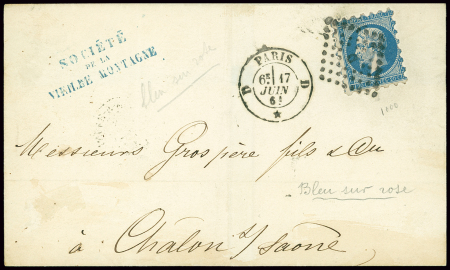 SOCIÉTÉ
DE LA
VIEILLE MONTAGNE
bleu sur rose
PARIS
6E 17
JUIN
61
D D
1000
Messieurs Grospère fils &
Bleu sur rose
à Chalon s/ Saône